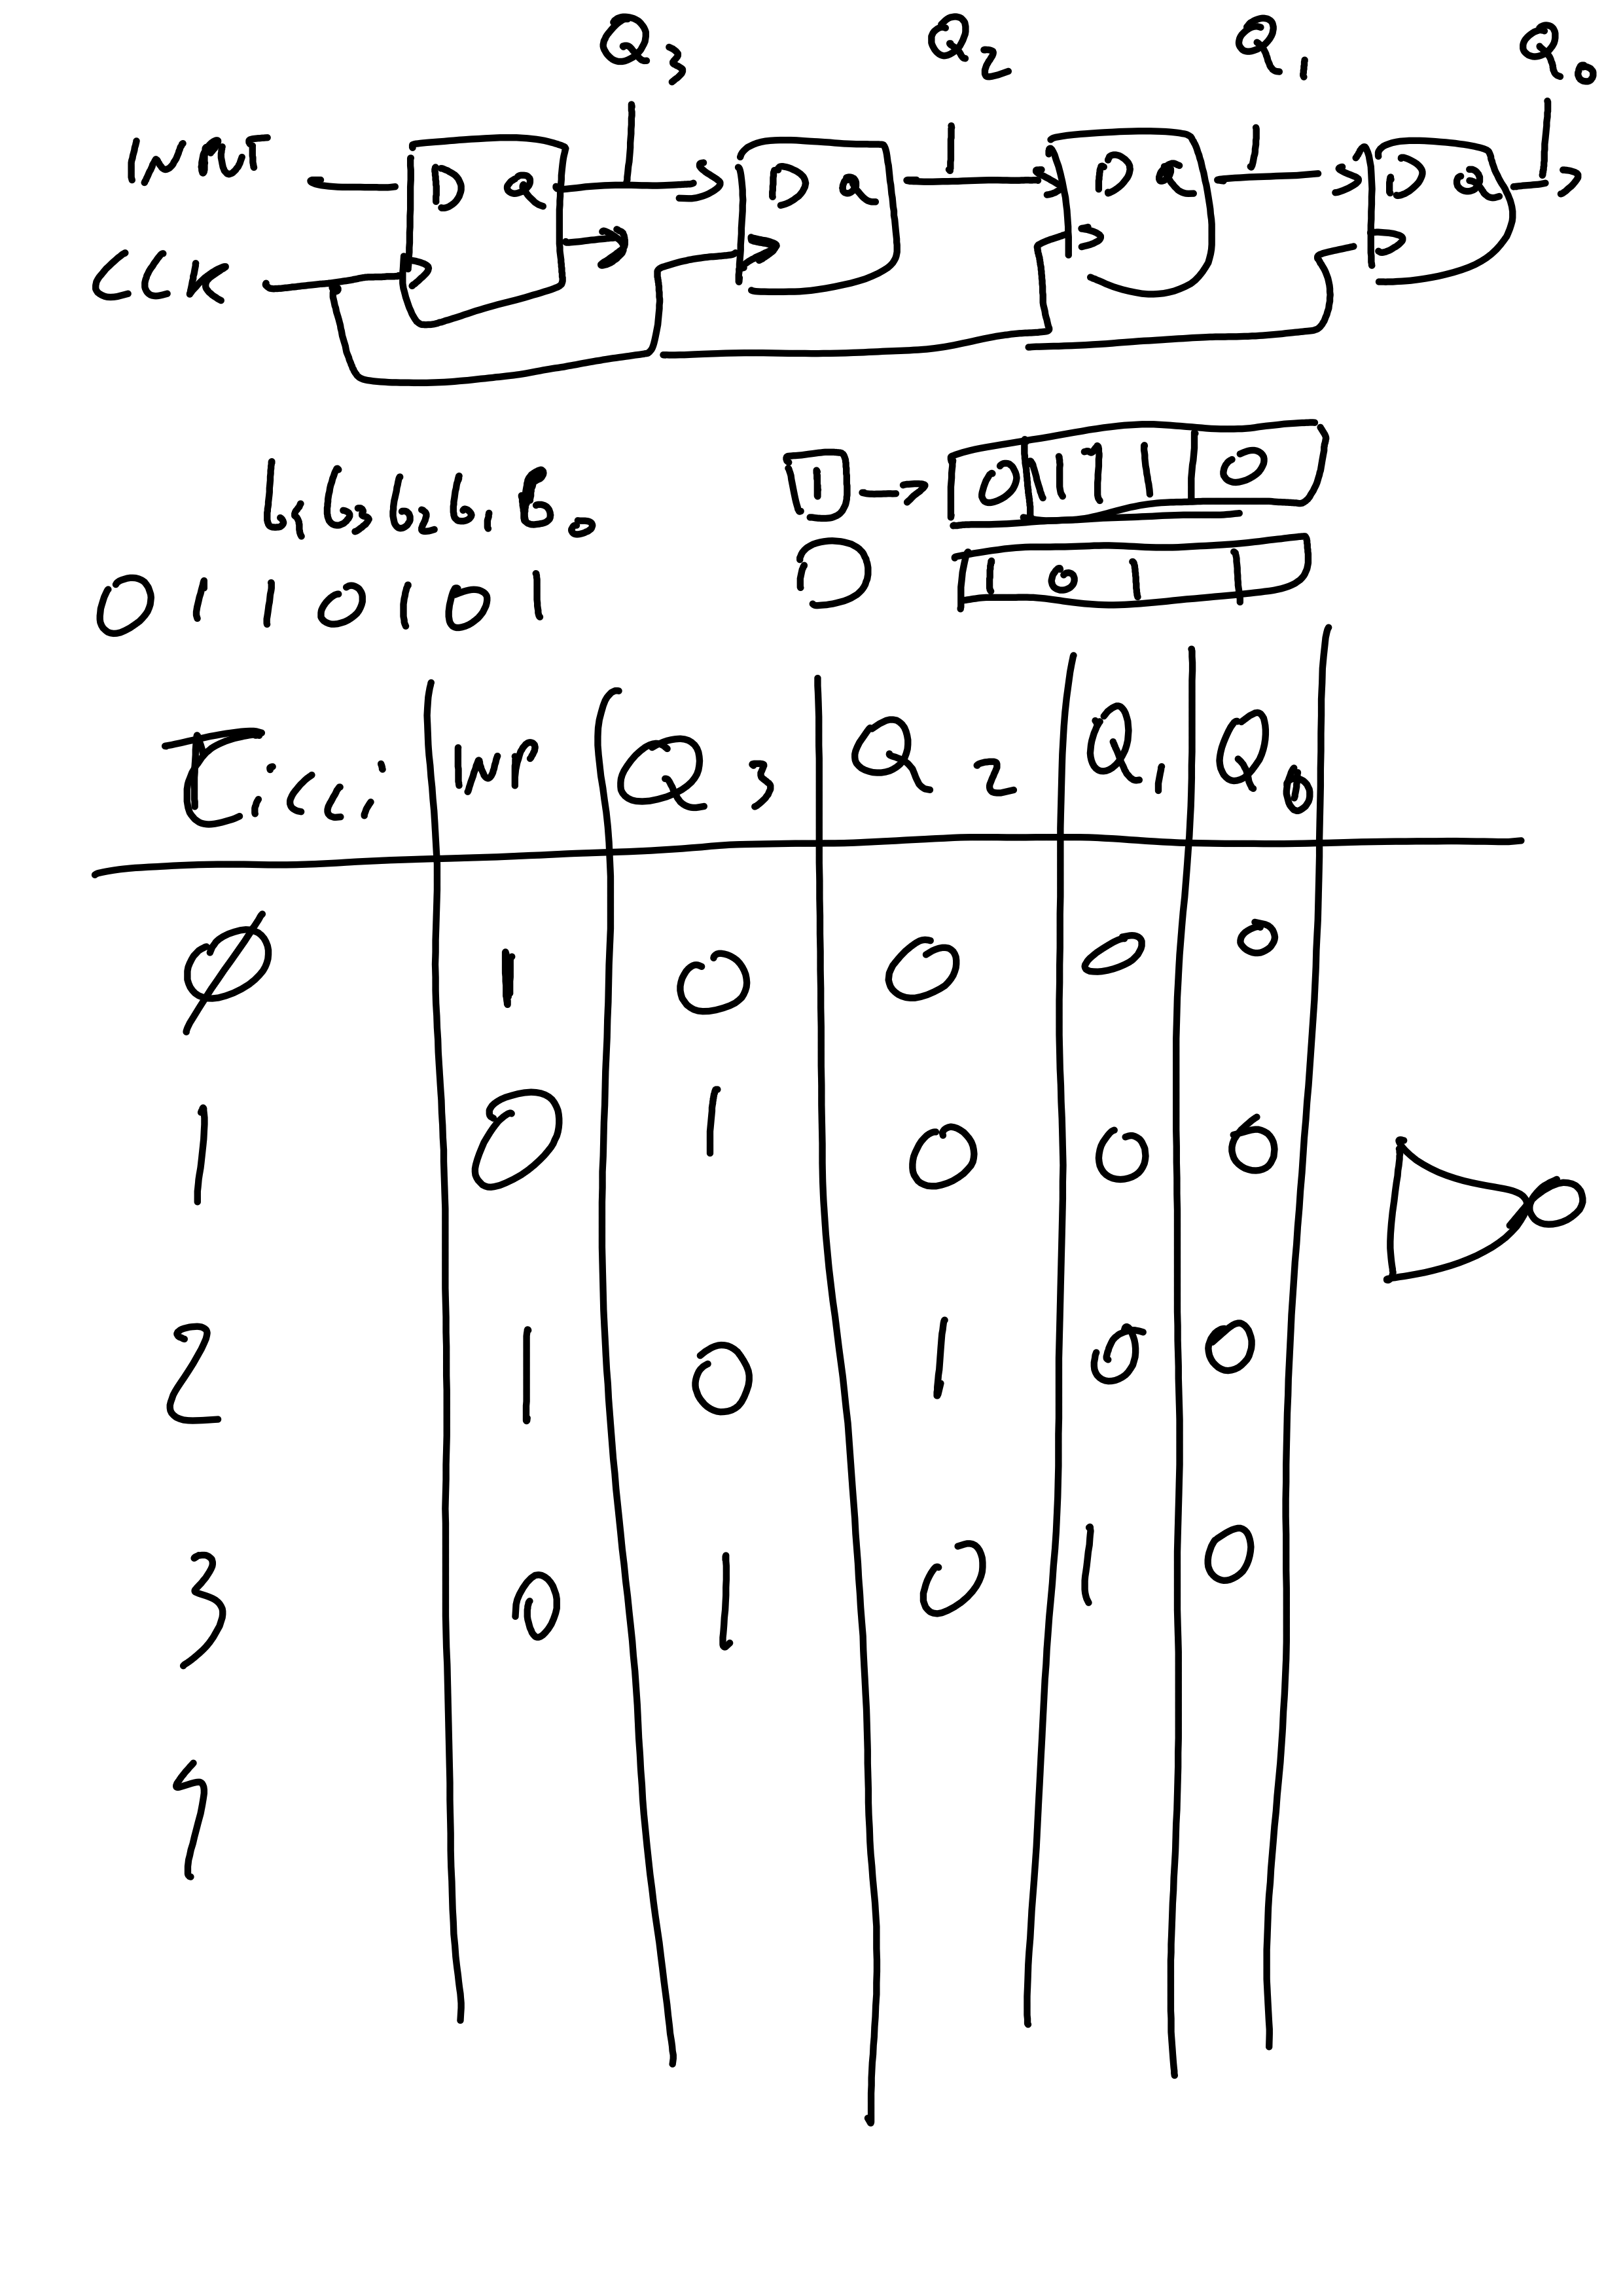 Q3 Q2 Q1 Q0
INPUT D Q D Q D Q D Q
CLK
b4 b3 b2 b1 b0
0 1 1 0 1 0 1
1 0
1 0 1 1
INP Q3 Q2 Q1 Q0
Ø 1 0 0 0 0
1 0 1 0 0 0
2 1 0 1 0 0
3 0 1 0 1 0
4